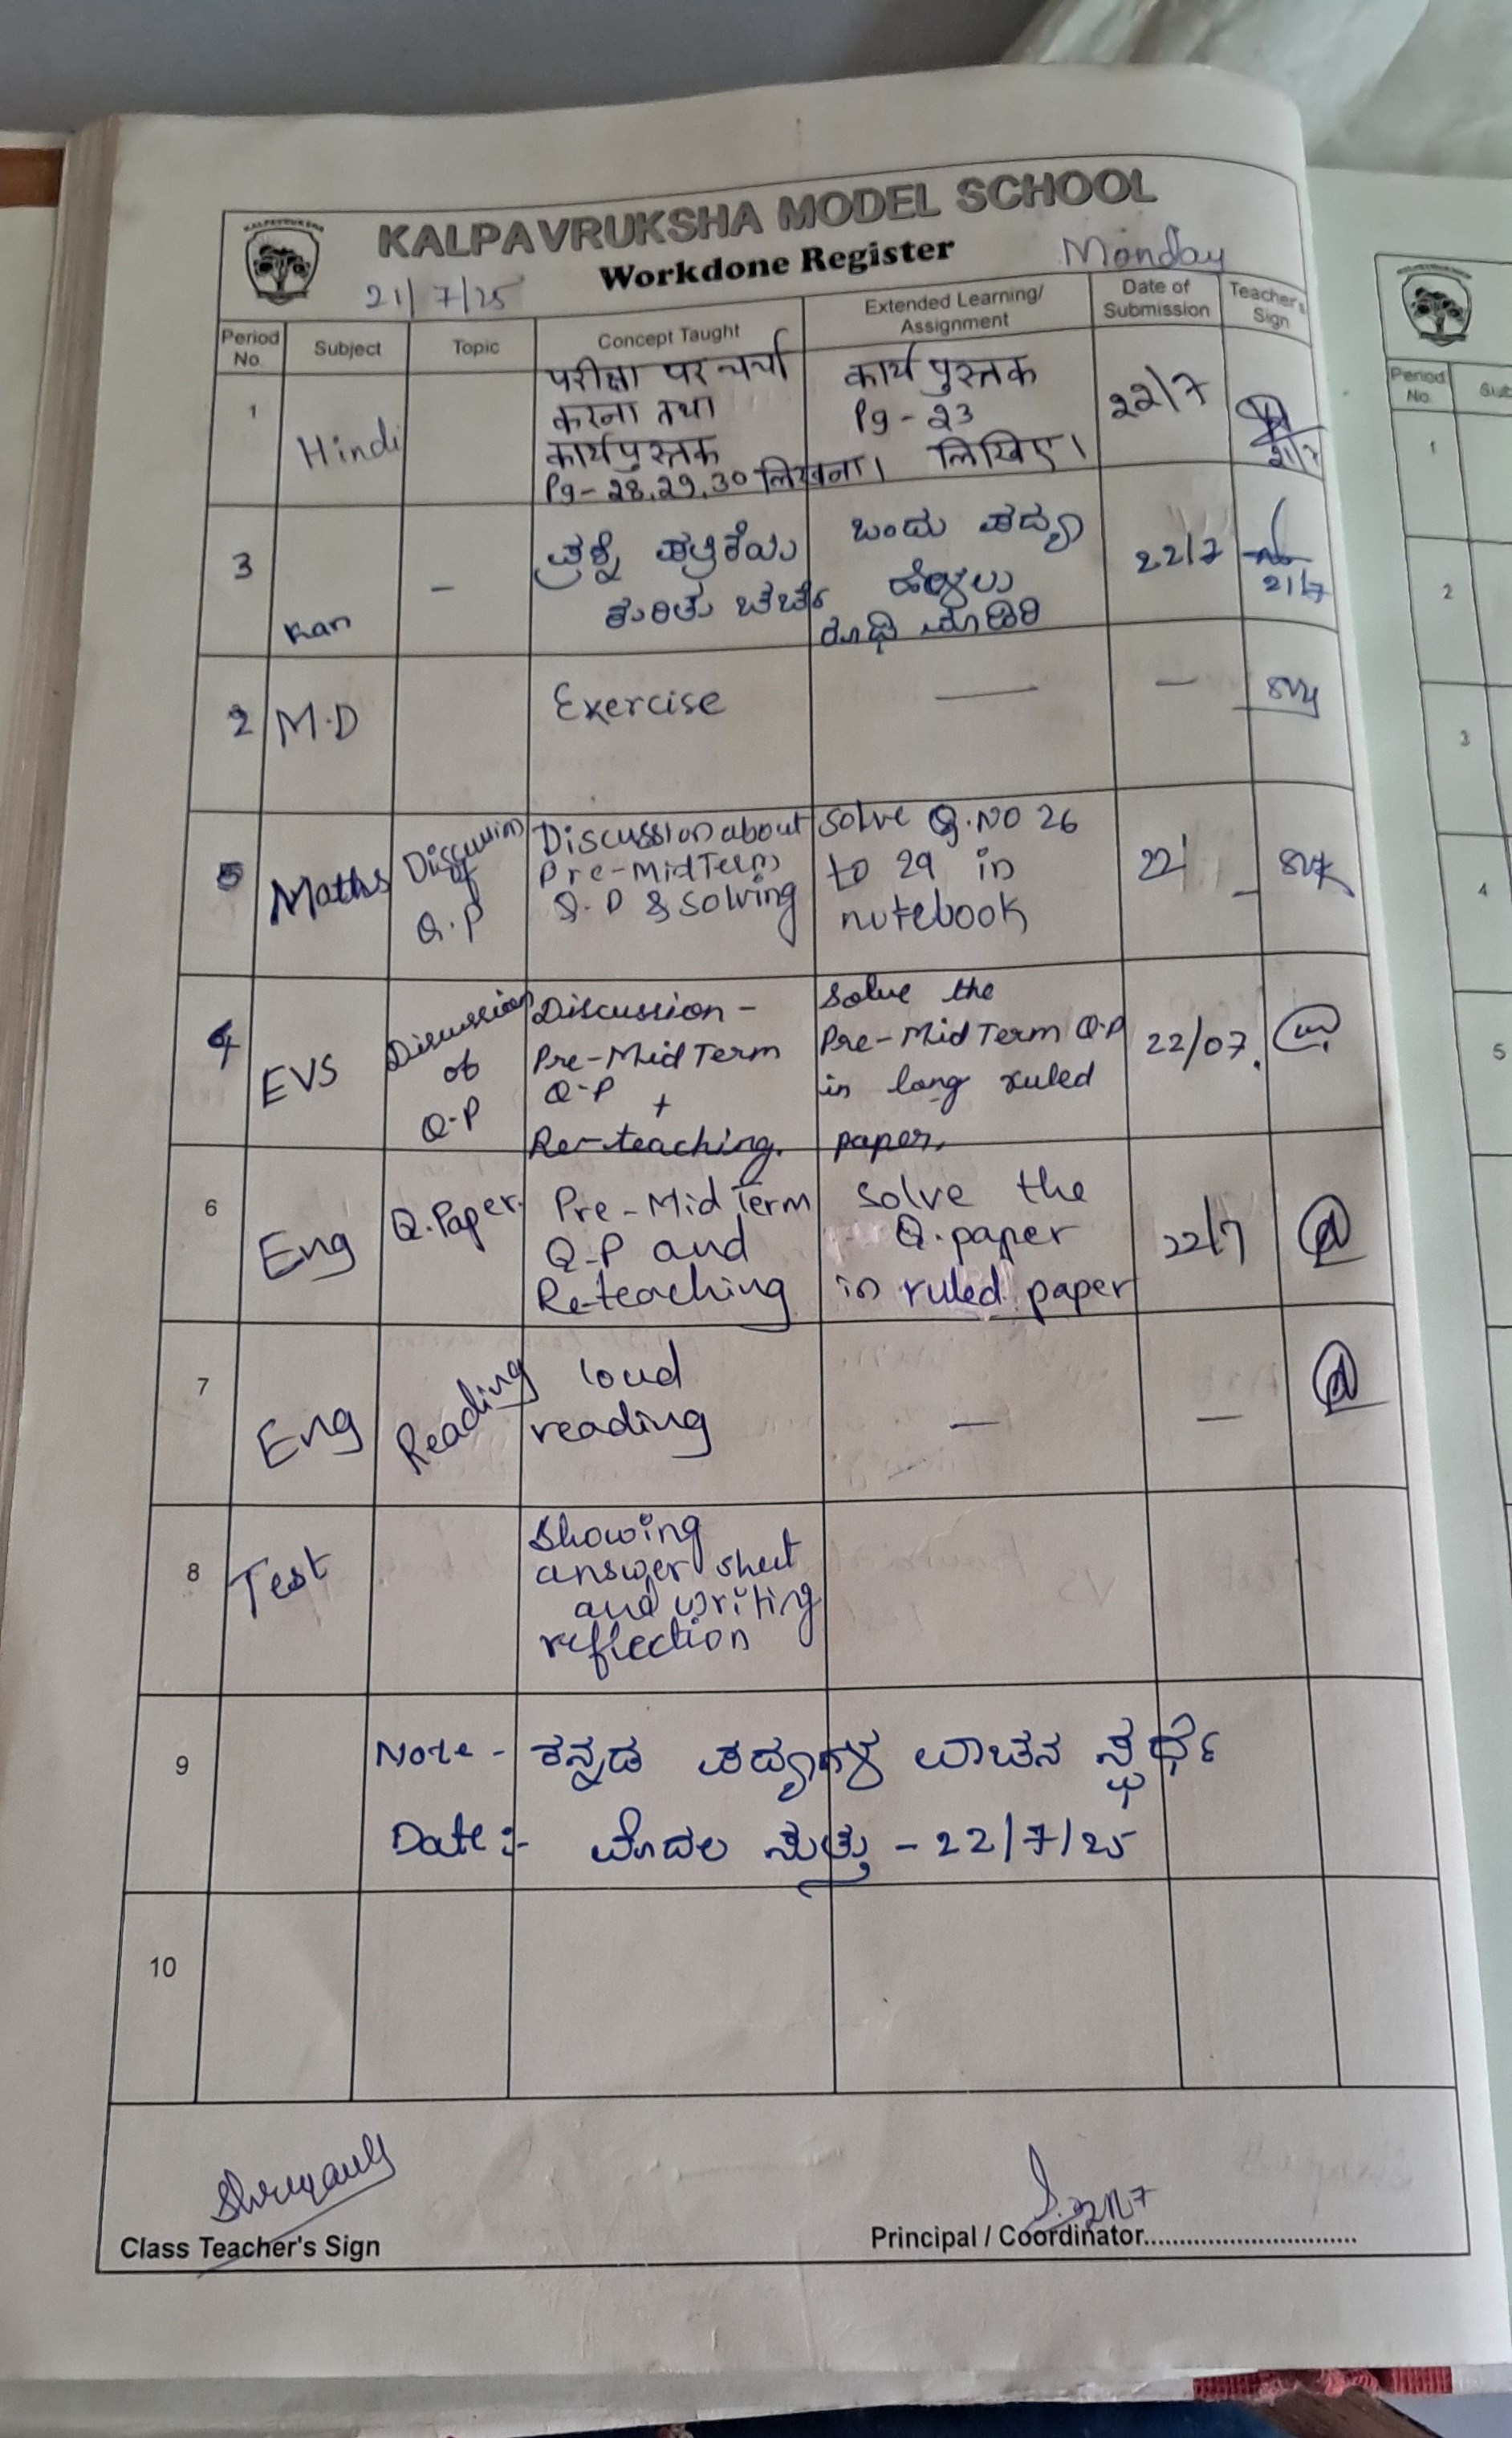 KALPAVRUKSHA
KALPAVRUKSHA MODEL SCHOOL
Workdone Register
Monday
21/7/25
Period No.
Subject
Topic
Concept Taught
Extended Learning/ Assignment
Date of Submission
Teacher's Sign
1
Hindi
परीक्षा पर चर्चा
करना तथा
कार्यपुस्तक
Pg-28,29,30 लिखना।
कार्य पुस्तक
Pg-23
लिखिए।
22/7
21/7
3
Kan
-
ಪ್ರಶ್ನೆ ಪತ್ರಿಕೆಯ
ಕುರಿತು ಚರ್ಚೆ
ಒಂದು ಪದ್ಯಾ
ಹೇಳಲು
ರೂಢಿ ಮಾಡಿರಿ
22/7
21/7
2
M.D
Exercise
—
—
5
Maths
Discussion
of
Q.P
Discussion about
Pre-Mid Term
Q.P & Solving
Solve Q.NO 26
to 29 in
notebook
22/
4
EVS
Discussion
of
Q-P
Discussion -
Pre-Mid Term
Q-P
+
Re-teaching.
Solve the
Pre-Mid Term Q.P
in long ruled
paper.
22/07.
6
Eng
Q.Paper.
Pre-Mid Term
Q-P and
Re-teaching
Solve the
Q.paper
in ruled paper
22/7
7
Eng
Reading
loud
reading
—
—
8
Test
Showing
answer sheet
and writing
reflection
9
Note - ಕನ್ನಡ ಪದ್ಯಗಳ ವಾಚನ ಸ್ಪರ್ಧೆ
Date :- ಮೊದಲ ಸುತ್ತು - 22/7/25
10
Class Teacher's Sign
Principal / Coordinator..............................
Period No.
1
2
3
4
5